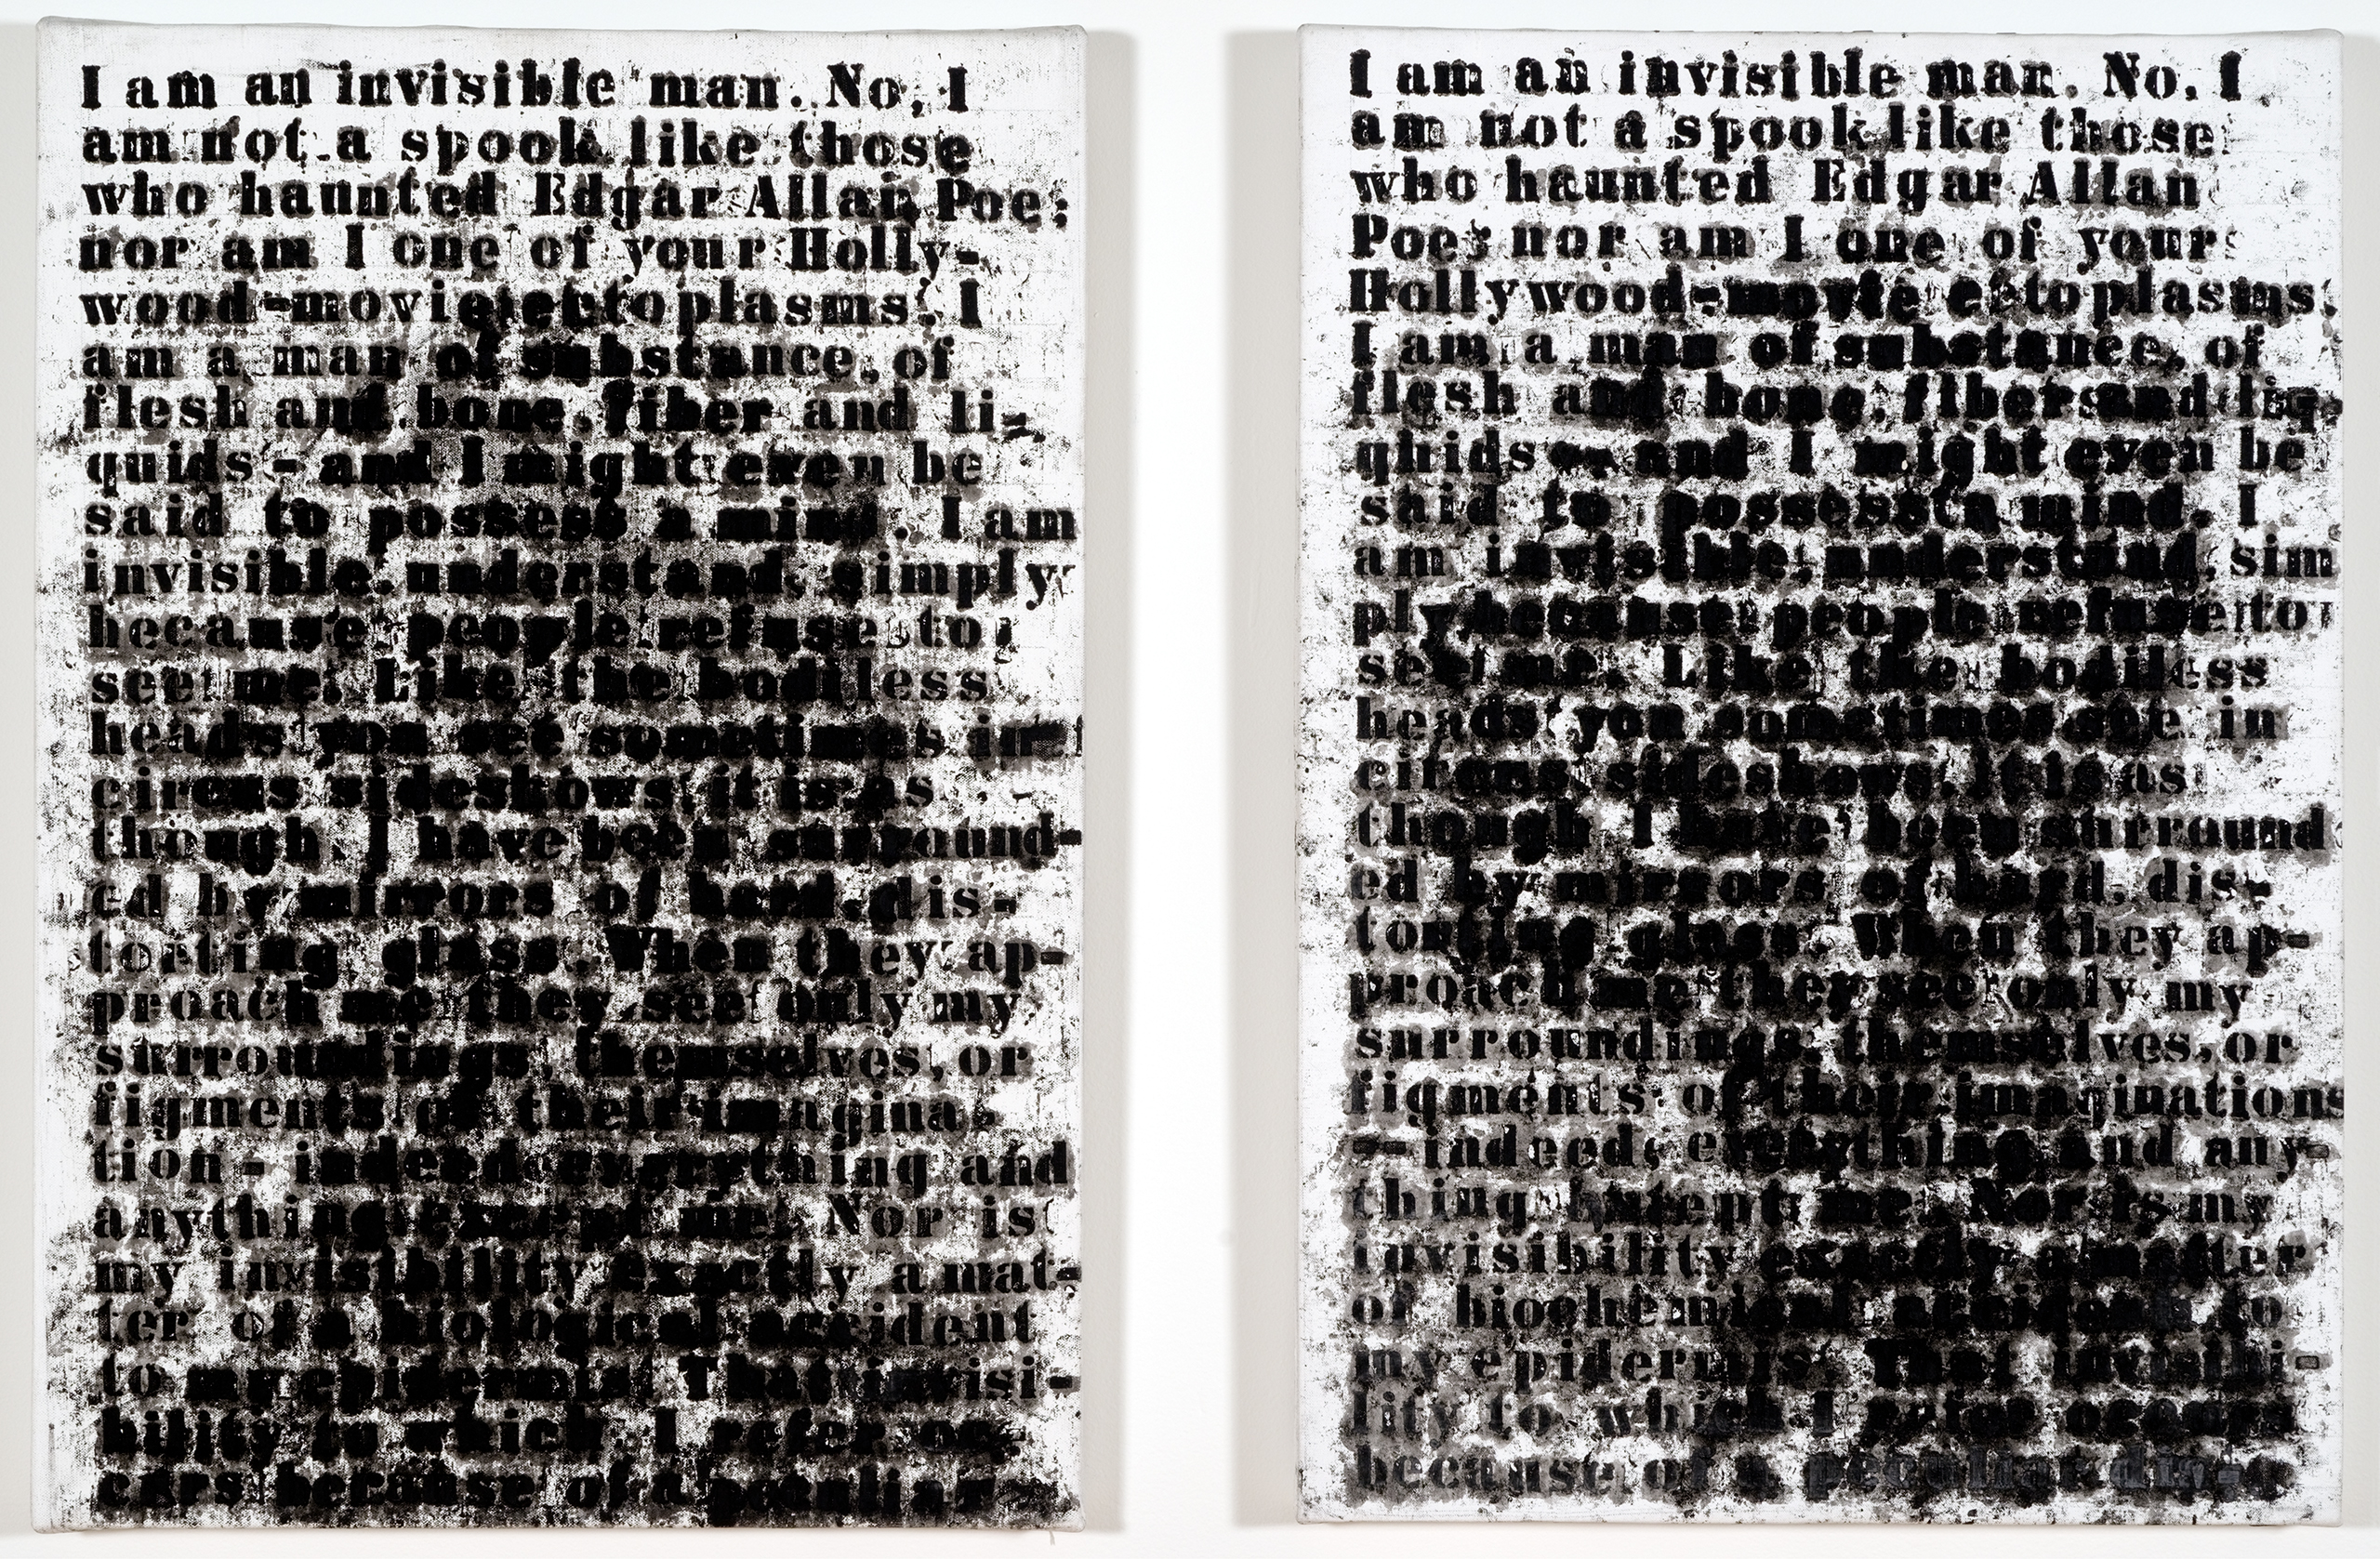 I am an invisible man. No, I
am not a spook like those
who haunted Edgar Allan Poe;
nor am I one of your Holly-
wood-movie ectoplasms. I
am a man of substance, of
flesh and bone, fiber and li-
quids - and I might even be
said to possess a mind. I am
invisible, understand, simply
because people refuse to
see me. Like the bodiless
heads you see sometimes in
circus sideshows, it is as
though I have been surround-
ed by mirrors of hard, dis-
torting glass. When they ap-
proach me they see only my
surroundings, themselves, or
figments of their imagina-
tion - indeed everything and
anything except me. Nor is
my invisibility exactly a mat-
ter of a biological accident
to my epidermis. That invisi-
bility to which I refer oc-
curs because of a peculiar
I am an invisible man. No, I
am not a spook like those
who haunted Edgar Allan
Poe; nor am I one of your
Hollywood-movie ectoplasms.
I am a man of substance, of
flesh and bone, fiber and liq-
quids -- and I might even be
said to possess a mind. I
am invisible, understand, sim
ply because people refuse to
see me. Like the bodiless
heads you sometimes see in
circus sideshows, it is as
though I have been surround
ed by mirrors of hard, dis-
torting glass. When they ap-
proach me they see only my
surroundings, themselves, or
figments of their imaginations
-- indeed, everything and any-
thing except me. Nor is my
invisibility exactly a matter
of biochemical accident to
my epidermis. That invisibi-
lity to which I refer occurs
because of a peculiar dis-